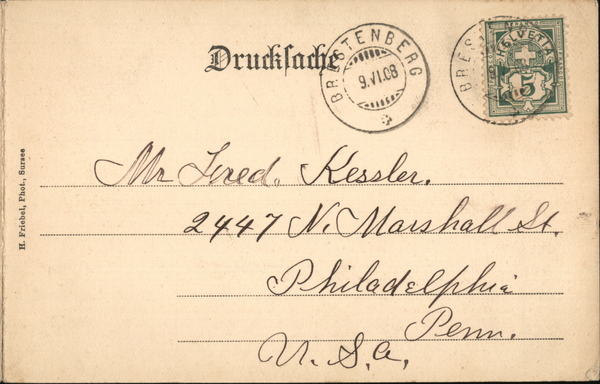 Drucksache
BRESTENBERG
9.VI.08
BRES
HELVETIA
5
H. Friebel, Phot., Sursee
Mr Fred. Kessler.
2447 N. Marshall St.
Philadelphia
Penn.
U.S.a.